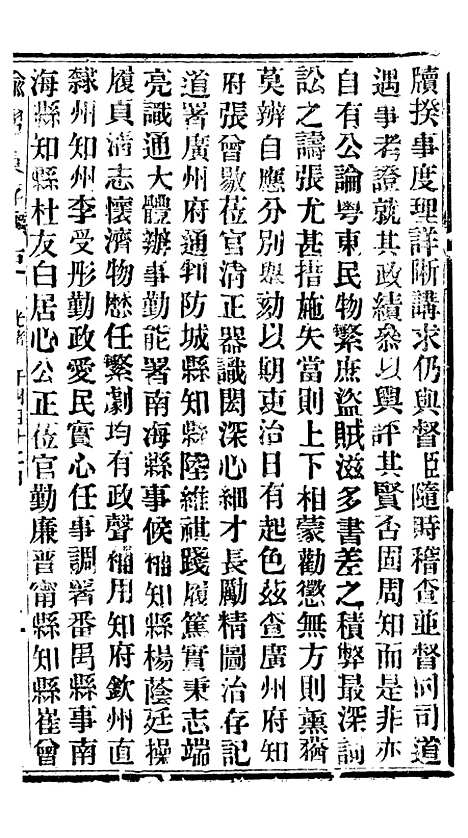 牘揆事度理詳晰講求仍與督臣隨時稽查並督同司道
遇事考證就其政績參以輿評其賢否固周知而是非亦
自有公論粤東民物繁庶盜賊滋多書差之積弊最深詞
訟之譸張尤甚措施失當則上下相蒙勸懲無方則薰蕕
莫辨自應分别舉劾以期吏治日有起色茲查廣州府知
府張曾敭莅官清正器識閎深心細才長勵精圖治存記
道署廣州府通判防城縣知縣陸維祺踐履篤實秉志端
亮識通大體辦事勤能署南海縣事候補知縣楊蔭廷操
履貞清志懷濟物懋任繁劇均有政聲補用知府欽州直
隸州知州李受彤勤政愛民實心任事調署番禺縣事南
海縣知縣杜友白居心公正莅官勤廉晋甯縣知縣崔曾